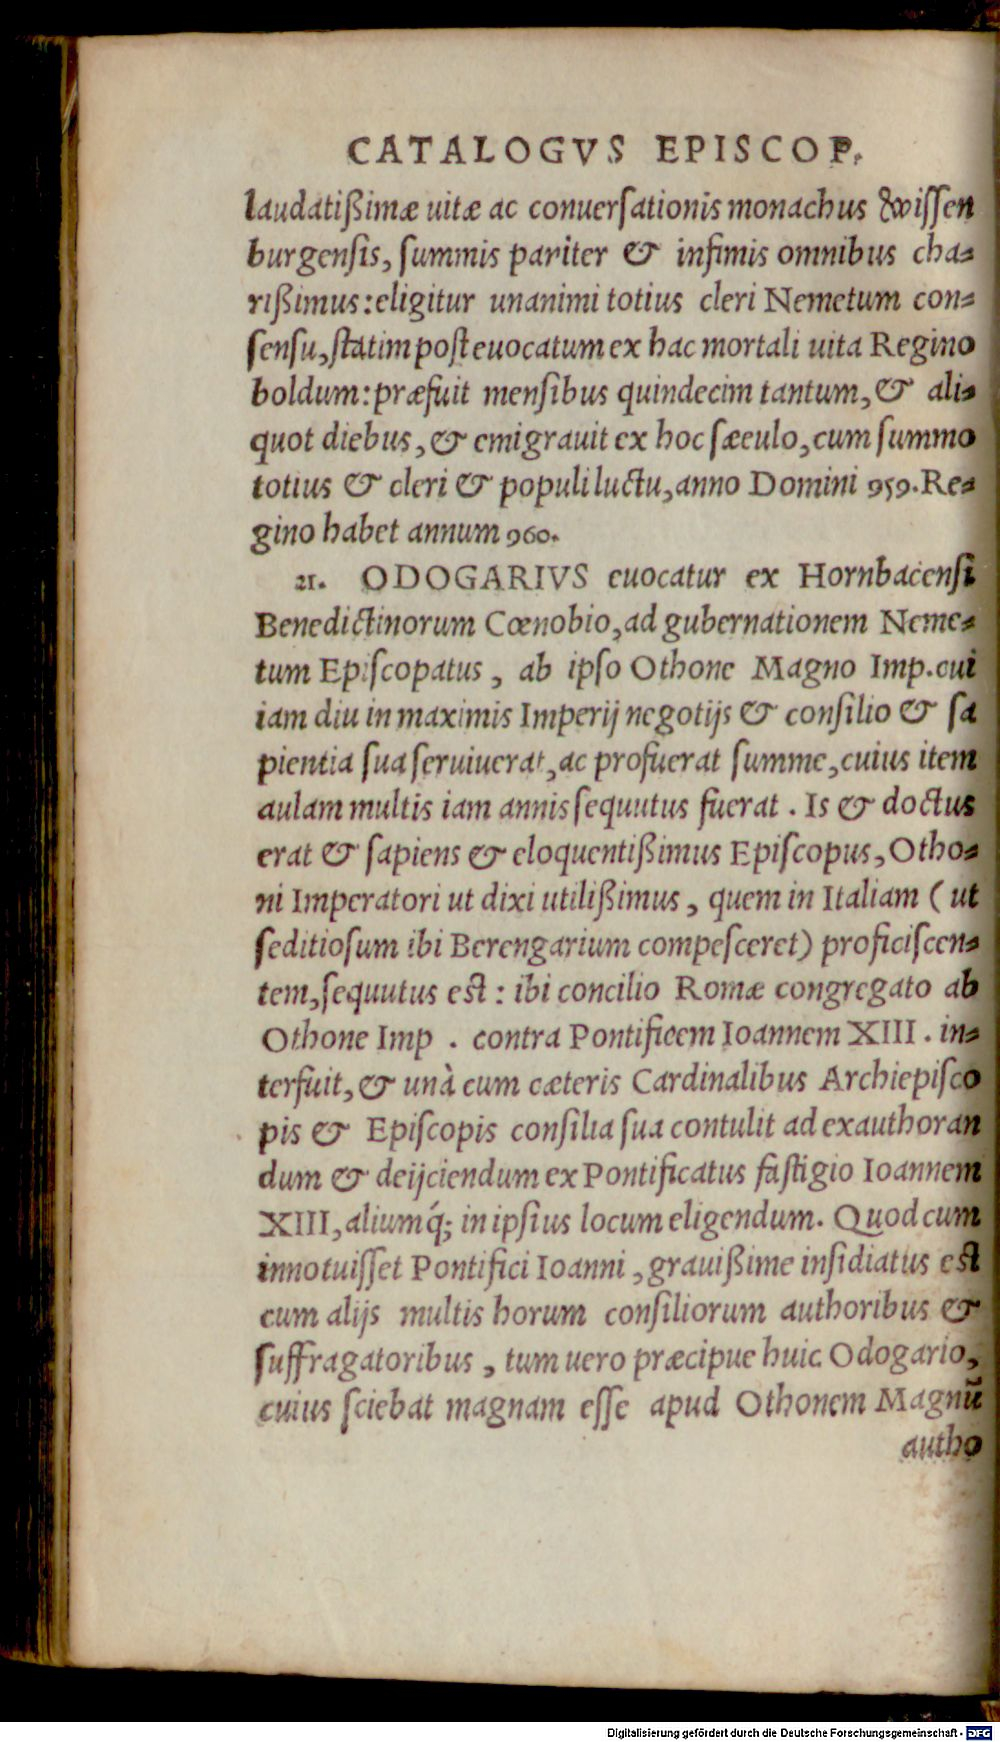 CATALOGVS EPISCOP.
laudatißimæ uitæ ac conuerſationis monachus Wiſſen
burgenſis, ſummis pariter & infimis omnibus cha-
rißimus: eligitur unanimi totius cleri Nemetum con-
ſenſu, ſtatim poſt euocatum ex hac mortali uita Regino
boldum: præfuit menſibus quindecim tantum, & ali-
quot diebus, & emigrauit ex hoc ſæculo, cum ſummo
totius & cleri & populi luctu, anno Domini 959. Re-
gino habet annum 960.
21. ODOGARIVS euocatur ex Hornbacenſi
Benedictinorum Cœnobio, ad gubernationem Neme-
tum Epiſcopatus, ab ipſo Othone Magno Imp. cui
iam diu in maximis Imperij negotijs & conſilio & ſa
pientia ſua ſeruiuerat, ac profuerat ſumme, cuius item
aulam multis iam annis ſequutus fuerat. Is & doctus
erat & ſapiens & eloquentißimus Epiſcopus, Otho-
ni Imperatori ut dixi utilißimus, quem in Italiam (ut
ſeditioſum ibi Berengarium compeſceret) proficiſcen-
tem, ſequutus est: ibi concilio Romæ congregato ab
Othone Imp. contra Pontificem Ioannem XIII. in-
terfuit, & unà cum cæteris Cardinalibus Archiepiſco
pis & Epiſcopis conſilia ſua contulit ad exauthoran
dum & deijciendum ex Pontificatus faſtigio Ioannem
XIII, aliumq́; in ipſius locum eligendum. Quod cum
innotuiſſet Pontifici Ioanni, grauißime inſidiatus est
cum alijs multis horum conſiliorum authoribus &
ſuffragatoribus, tum uero præcipue huic Odogario,
cuius ſciebat magnam eſſe apud Othonem Magnū
autho
Digitalisierung gefördert durch die Deutsche Forschungsgemeinschaft - DFG